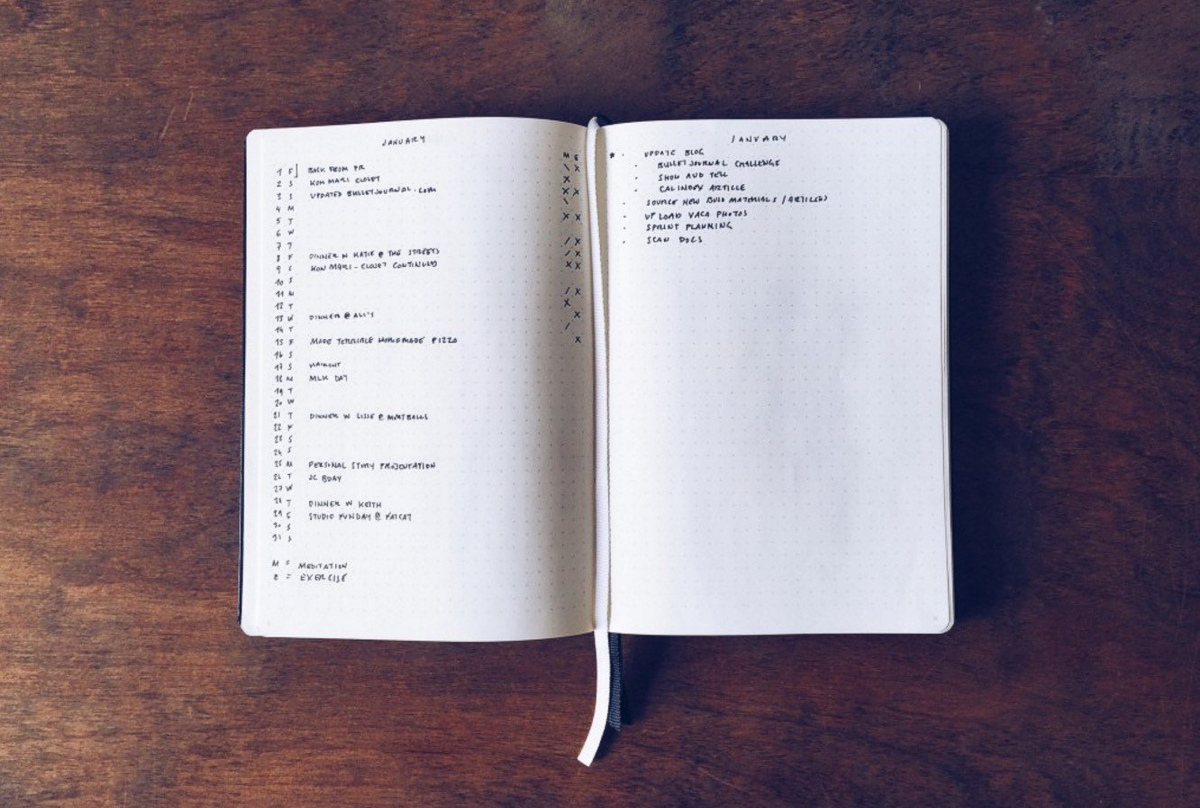 JANUARY
M E
1 F BACK FROM PR \ X
2 S KON MARI CLOSET X
3 S UPDATED BULLETJOURNAL.COM X X
4 M \
5 T X X
6 W
7 T / X
8 F DINNER W KATIE @ THE STREETS / X
9 S KON MARI - CLOSET CONTINUED X X
10 S
11 M / X
12 T X
13 W DINNER @ ALI'S X
14 T /
15 F MADE TERRIBLE HOMEMADE PIZZA X
16 S
17 S HAIRCUT
18 M MLK DAY
19 T
20 W
21 T DINNER W LISSE @ MEATBALLS
22 F
23 S
24 S
25 M PERSONAL STORY PRESENTATION
26 T JC BDAY
27 W
28 T DINNER W KEITH
29 S STUDIO FUNDAY @ KATCAT
30 S
31 S
M = MEDITATION
E = EXERCISE
JANUARY
* · UPDATE BLOG
· BULLET JOURNAL CHALLENGE
· SHOW AND TELL
· CALINDEX ARTICLE
· SOURCE NEW BUJO MATERIALS / ARTICLES
· UPLOAD VACA PHOTOS
· SPRINT PLANNING
· SCAN DOCS